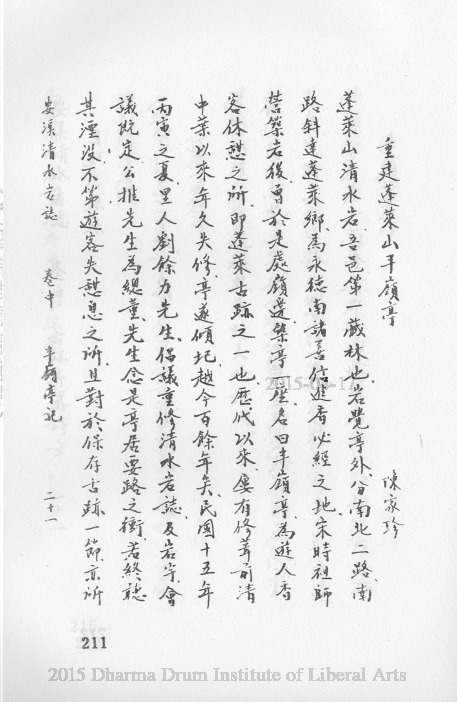 重建蓬萊山半嶺亭
陳家珍
蓬萊山清水岩、吾邑第一叢林也、岩覺亭外、分南北二路、南
路斜達蓬萊鄉、為永德南諸善信進香必經之地、宋時祖師
營築岩後、曾於是處嶺邊築亭一座、名曰半嶺亭、為遊人香
客休憩之所、即蓬萊古跡之一也、歷代以來、屢有修葺、前清
中葉以來、年久失修、亭遂傾圯、越今百餘年矣、民國十五年
丙寅之夏、里人劉餘力先生、倡議重修清水岩誌、及岩宇、會
議既定、公推先生為總董、先生念是亭居要路之衝、若終聽
其湮沒、不第遊客失憩息之所、且對於保存古跡一節、亦所
安溪清水岩誌 卷中 半嶺亭記 二十一
211
2015-03-17
2015 Dharma Drum Institute of Liberal Arts